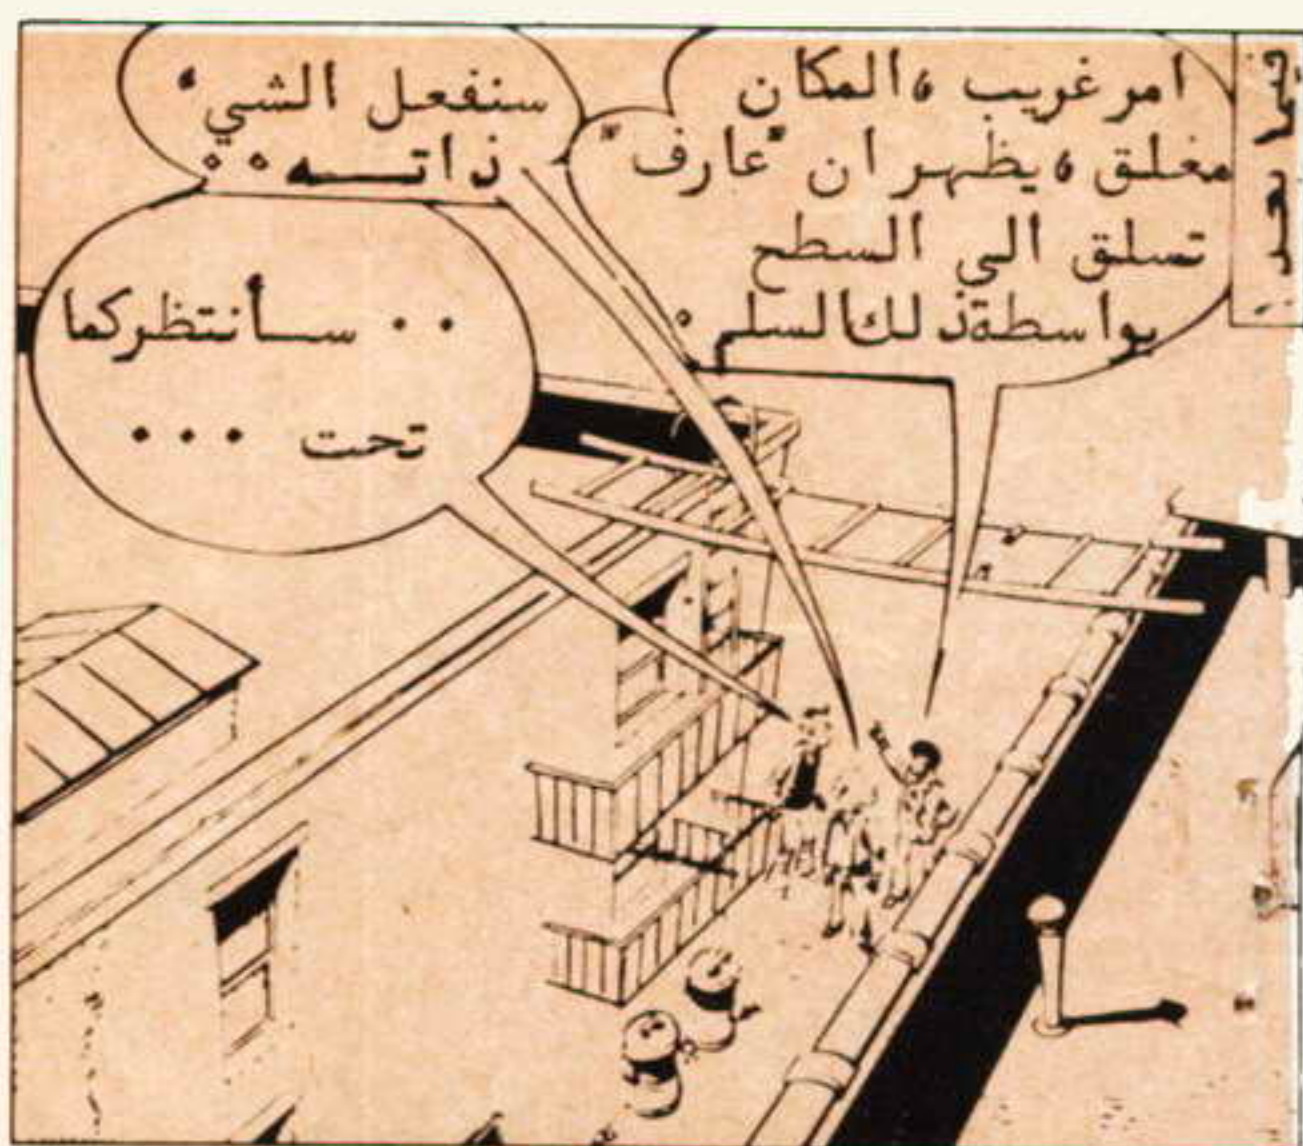 فيما بعد
امر غريب ، المكان
مغلق ، يظهر ان "عارف"
تسلق الى السطح
بواسطة ذلك السلم .
سنفعل الشيء
ذاتـــه ..
.. ســأنتظركما
تحت ...